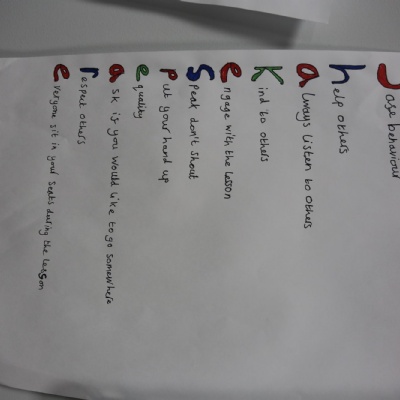 behaviour
help others
always listen to others
Kind to others
engage with the lesson
Speak don't shout
Put your hand up
equality
ask if you would like to go somewhere
respect others
everyone sit in your seats during the lesson